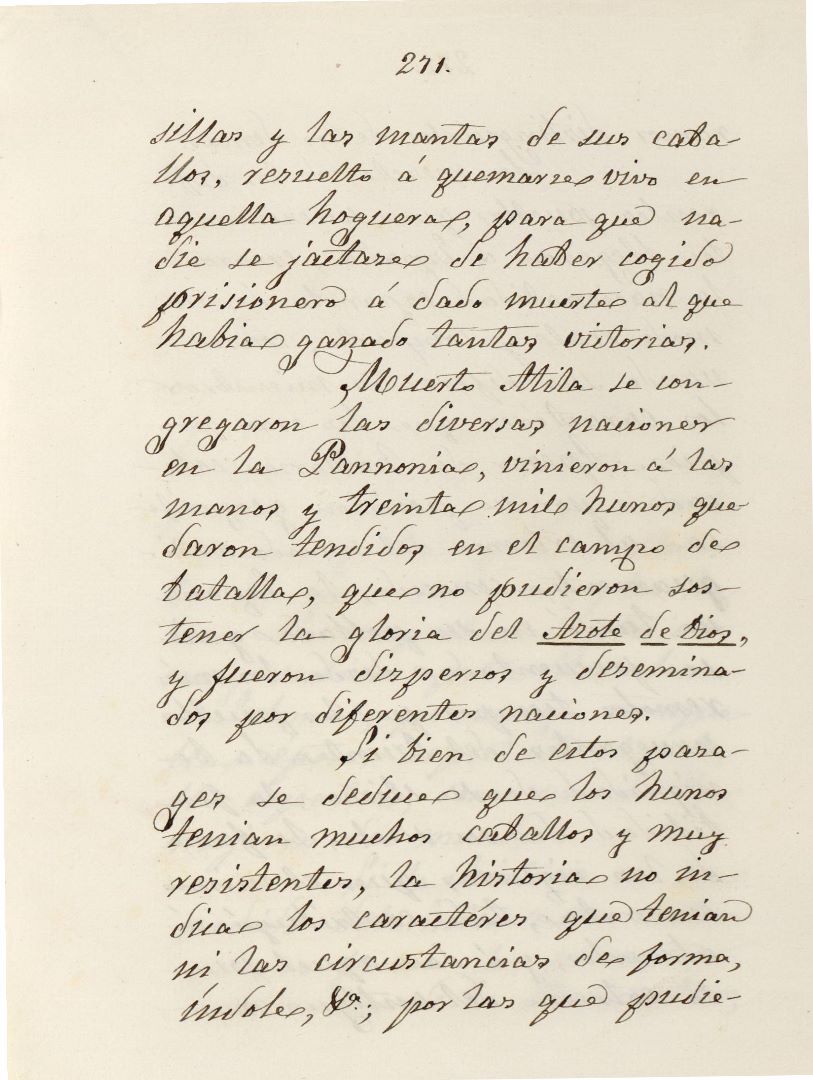 271.
sillas y las mantas de sus caba-
llos, resuelto á quemarse vivo en
aquella hoguera, para que na-
die se jactase de haber cogido
prisionero á dado muerte al que
habia ganado tantas victorias.
Muerto Atila se con-
gregaron las diversas naciones
en la Pannonia, vinieron á las
manos y treinta mil hunos que
daron tendidos en el campo de
batalla, que no pudieron sos-
tener la gloria del Azote de Dios,
y fueron dispersos y desemina-
dos por diferentes naciones.
Si bien de estos para-
ges se deduce que los hunos
tenian muchos caballos y muy
resistentes, la historia no in-
dica los caractéres que tenian
ni las circustancias de forma,
índole, &a.; por las que pudie-